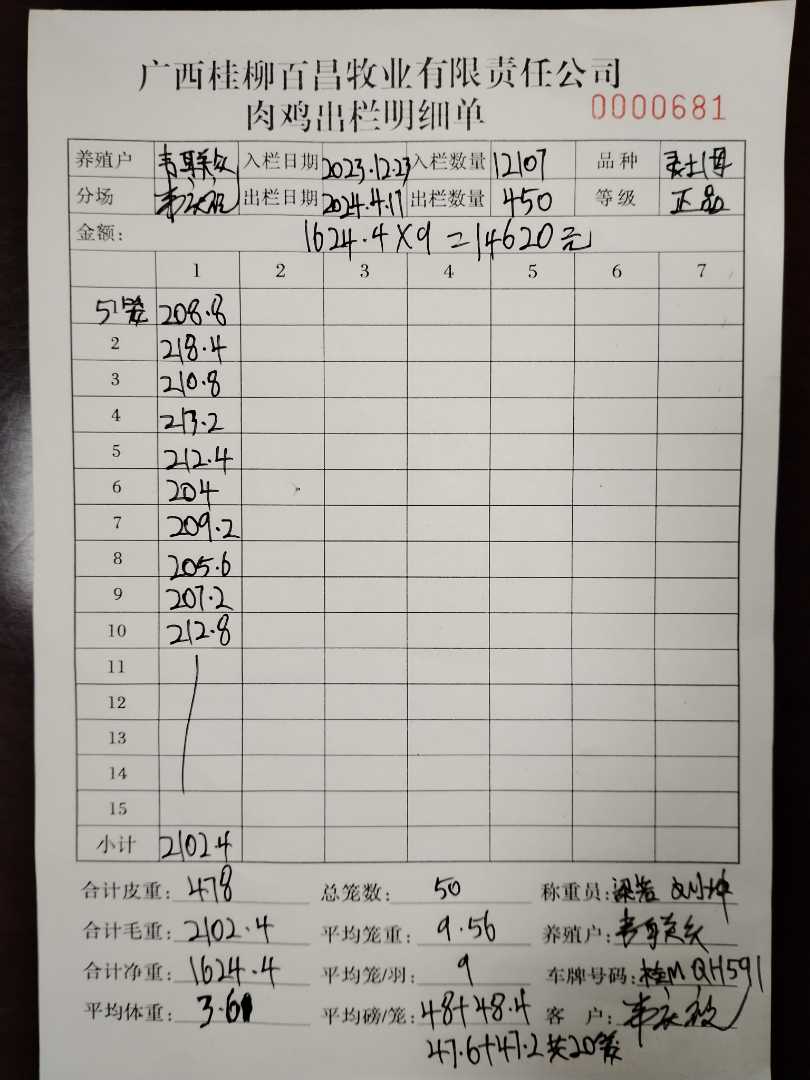 广西桂柳百昌牧业有限责任公司
肉鸡出栏明细单 0000681
养殖户 韦联欢 入栏日期 2023.12.23 入栏数量 12107 品种
分场 出栏日期 2024.4.17 出栏数量 450 等级 正品
金额: 1624.4×9=14620元
1 2 3 4 5 6 7
5笼 208.8
2 218.4
3 210.8
4 213.2
5 212.4
6 204
7 209.2
8 205.6
9 207.2
10 212.8
11
12
13
14
15
小计 2102.4
合计皮重: 478 总笼数: 50 称重员:
合计毛重: 2102.4 平均笼重: 9.56 养殖户: 韦联欢
合计净重: 1624.4 平均笼/羽: 9 车牌号码: 桂M QH591
平均体重: 3.61 平均磅/笼: 48+48.4 客 户:
47.6+47.2共20笼